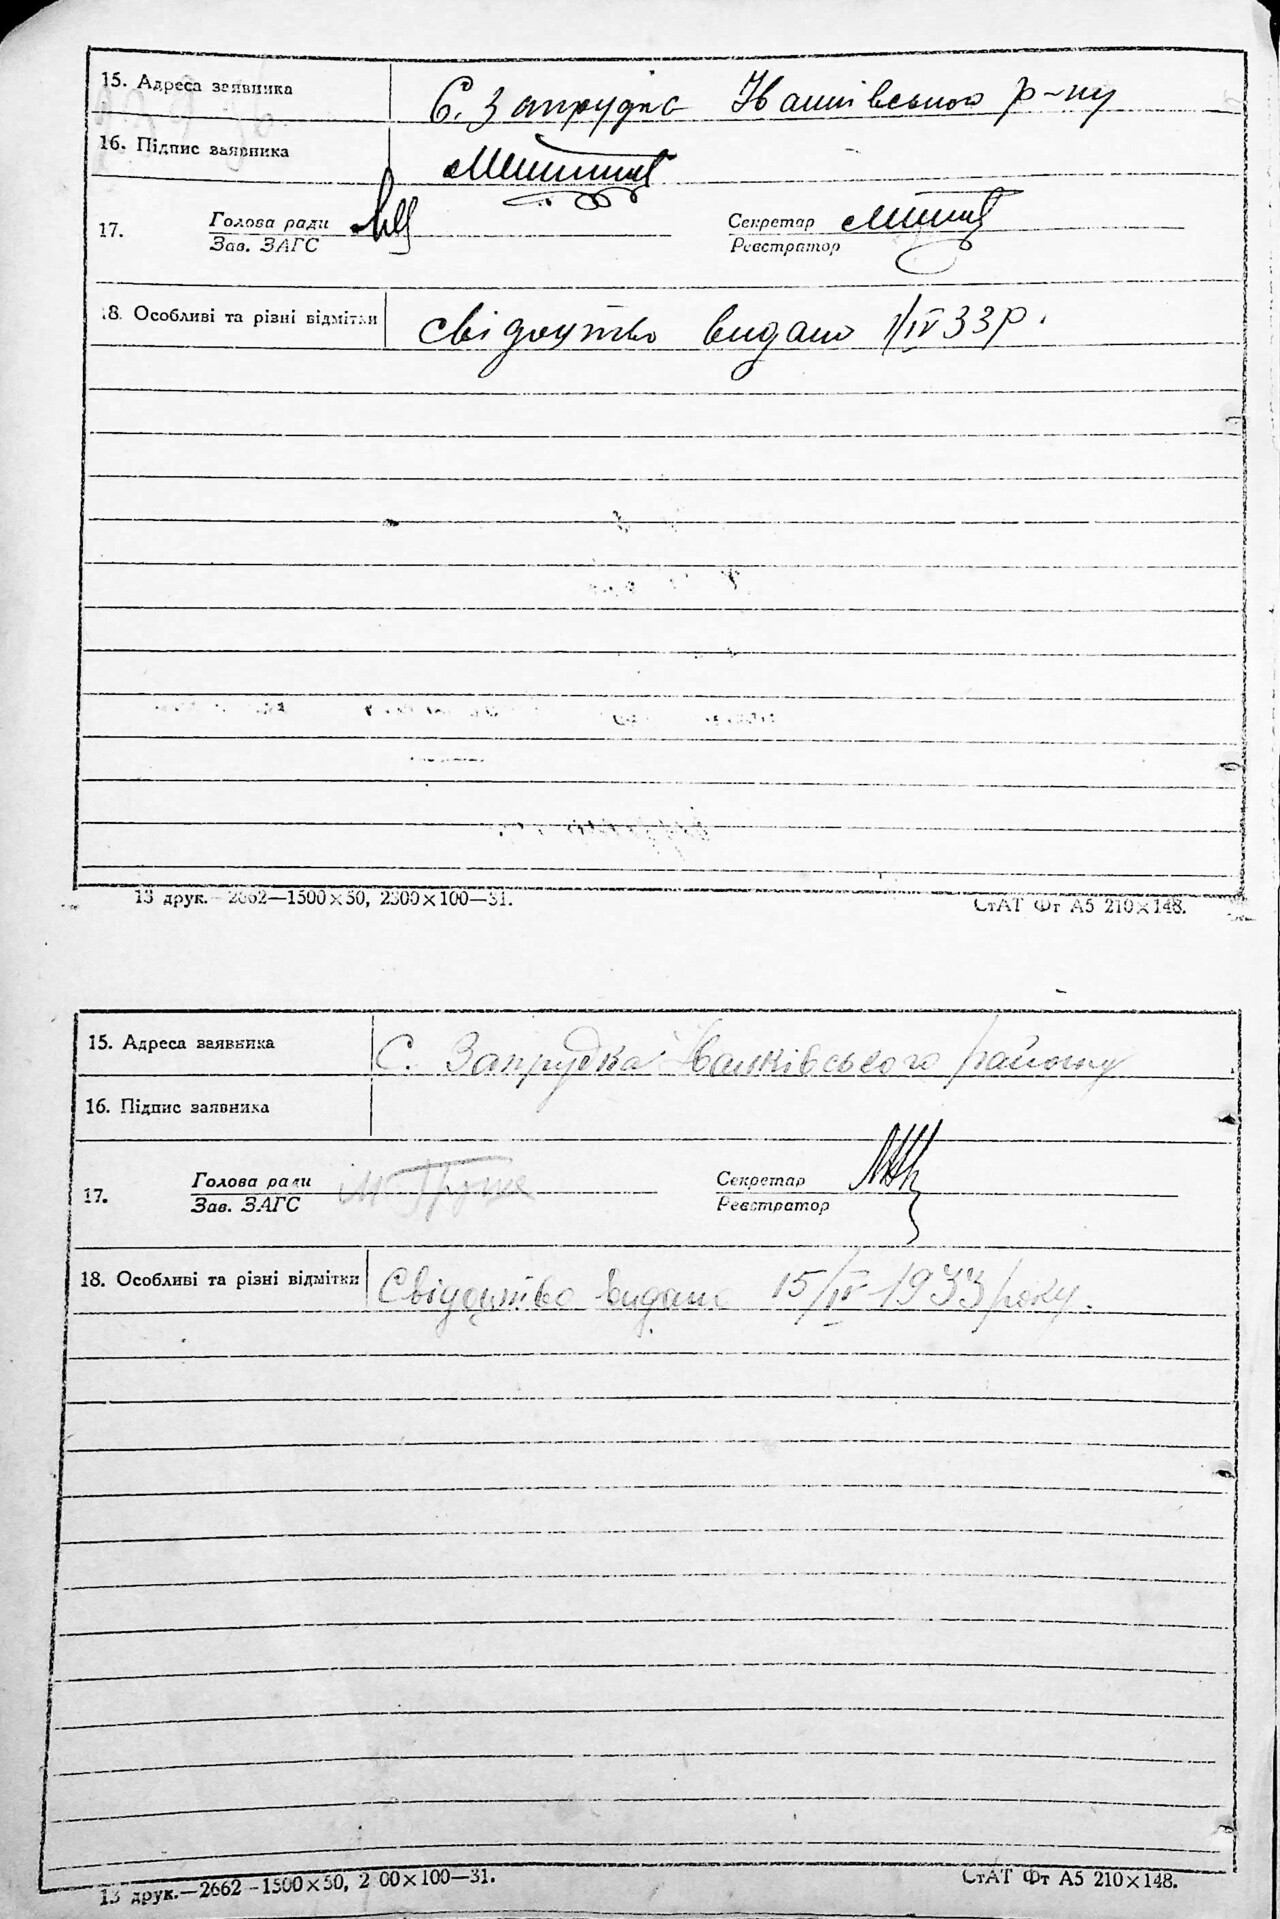 15. Адреса заявника С. Запрудка Іванківського р-ну
16. Підпис заявника
17. Голова ради Секретар
Зав. ЗАГС Реєстратор
18. Особливі та різні відмітки свідоцтво видано 1/IV 33 р.
13 друк.—2662—1500×50, 2300×100—31. СтАТ Фт А5 210×148.
15. Адреса заявника С. Запрудка Іванківського району
16. Підпис заявника
17. Голова ради Секретар
Зав. ЗАГС Реєстратор
18. Особливі та різні відмітки Свідоцтво видано 15/IV-1933 року.
13 друк.—2662-1500×50, 2 00×100—31. СтАТ Фт А5 210×148.